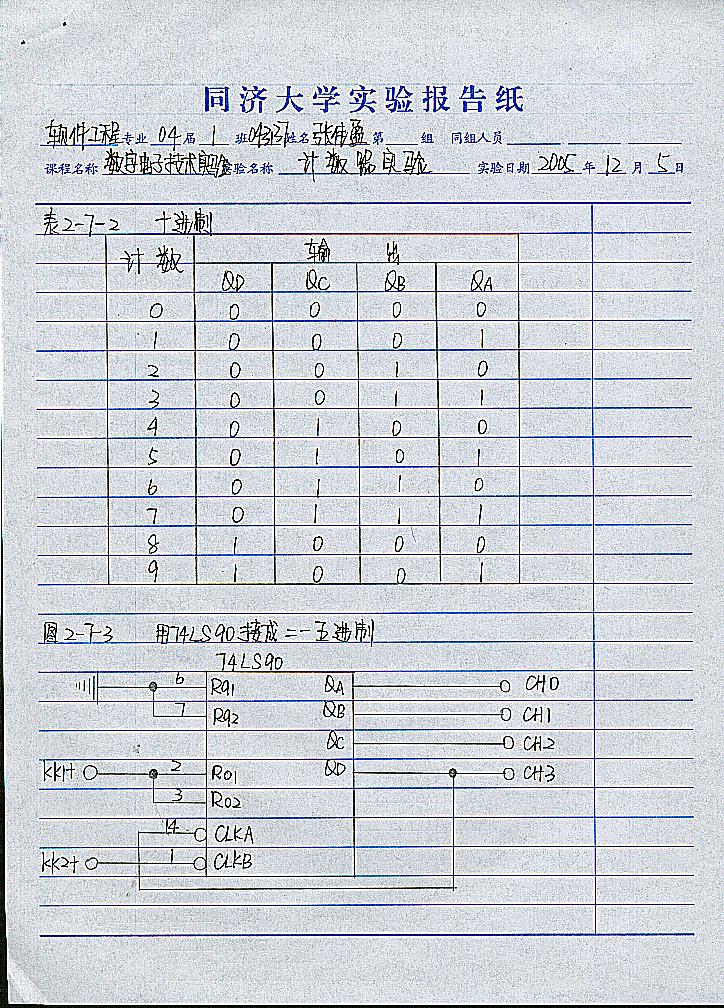 同济大学实验报告纸
软件工程 专业 04 届 1 班 043137 姓名 张伟盈 第 组 同组人员
课程名称 数字电子技术实验 实验名称 计数器实验 实验日期 2005 年 12 月 5 日
表2-7-2 十进制
计数 输出
QD QC QB QA
0 0 0 0 0
1 0 0 0 1
2 0 0 1 0
3 0 0 1 1
4 0 1 0 0
5 0 1 0 1
6 0 1 1 0
7 0 1 1 1
8 1 0 0 0
9 1 0 0 1
图2-7-3 用74LS90接成二一五进制
74LS90
6 R91 QA CH0
7 R92 QB CH1
QC CH2
KK1+ 2 R01 QD CH3
3 R02
14 CLKA
KK2+ 1 CLKB